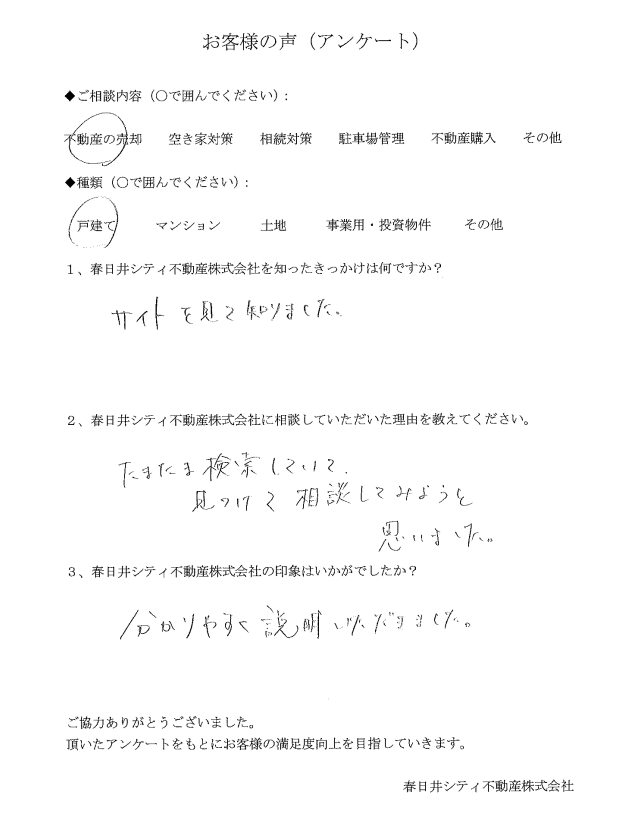 お客様の声（アンケート）
◆ご相談内容（○で囲んでください）：
不動産の売却　空き家対策　相続対策　駐車場管理　不動産購入　その他
◆種類（○で囲んでください）：
戸建て　マンション　土地　事業用・投資物件　その他
１、春日井シティ不動産株式会社を知ったきっかけは何ですか？
サイトを見て知りました。
２、春日井シティ不動産株式会社に相談していただいた理由を教えてください。
たまたま検索していて、
見つけて相談してみようと
思いました。
３、春日井シティ不動産株式会社の印象はいかがでしたか？
分かりやすく説明いただきました。
ご協力ありがとうございました。
頂いたアンケートをもとにお客様の満足度向上を目指していきます。
春日井シティ不動産株式会社